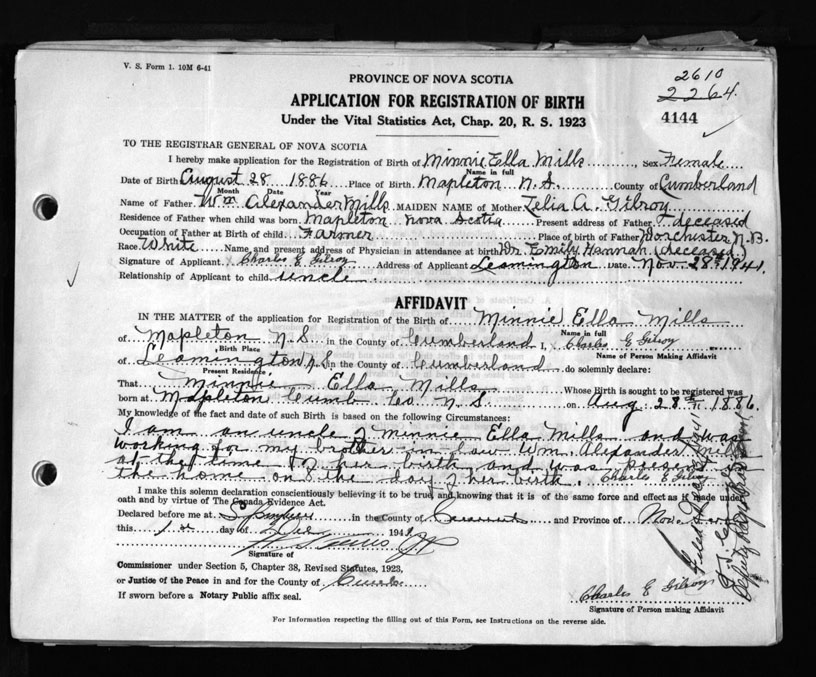 V. S. Form 1. 10M 6-41
2610
2264.
PROVINCE OF NOVA SCOTIA
APPLICATION FOR REGISTRATION OF BIRTH
Under the Vital Statistics Act, Chap. 20, R. S. 1923
4144
TO THE REGISTRAR GENERAL OF NOVA SCOTIA
I hereby make application for the Registration of Birth of Minnie Ella Mills, Sex Female
Name in full
Date of Birth August 28 1886 Place of Birth Mapleton N.S. County of Cumberland
Month Date Year
Name of Father Wm Alexander Mills MAIDEN NAME of Mother Zelia A. Gilroy
Residence of Father when child was born Mapleton Nova Scotia Present address of Father deceased
Occupation of Father at Birth of child Farmer Place of birth of Father Dorchester N.B.
Race White Name and present address of Physician in attendance at birth Dr. Emily Hannah (deceased)
Signature of Applicant Charles E Gilroy Address of Applicant Leamington Date Nov. 28th 1941.
Relationship of Applicant to child uncle.
AFFIDAVIT
IN THE MATTER of the application for Registration of the Birth of Minnie Ella Mills
Name in full
of Mapleton N.S. in the County of Cumberland I, Charles E Gilroy
Birth Place Name of Person Making Affidavit
of Leamington N.S in the County of Cumberland do solemnly declare:
Present Residence
That Minnie Ella Mills Whose Birth is sought to be registered was
born at Mapleton Cumb Co N.S. on Aug. 28th 1886.
My knowledge of the fact and date of such Birth is based on the following Circumstances:
I am an uncle of Minnie Ella Mills and was
working for my brother in law Wm. Alexander Mills
at the time of her birth and was present
the home on the day of her birth. Charles E Gilroy
I make this solemn declaration conscientiously believing it to be true, and knowing that it is of the same force and effect as if made under
oath and by virtue of The Canada Evidence Act.
Declared before me at in the County of and Province of Nova
this 1st day of 194
Signature of
Commissioner under Section 5, Chapter 38, Revised Statutes, 1923,
or Justice of the Peace in and for the County of
If sworn before a Notary Public affix seal.
Charles E Gilroy
Signature of Person making Affidavit
For Information respecting the filling out of this Form, see Instructions on the reverse side.
Deputy Registrar